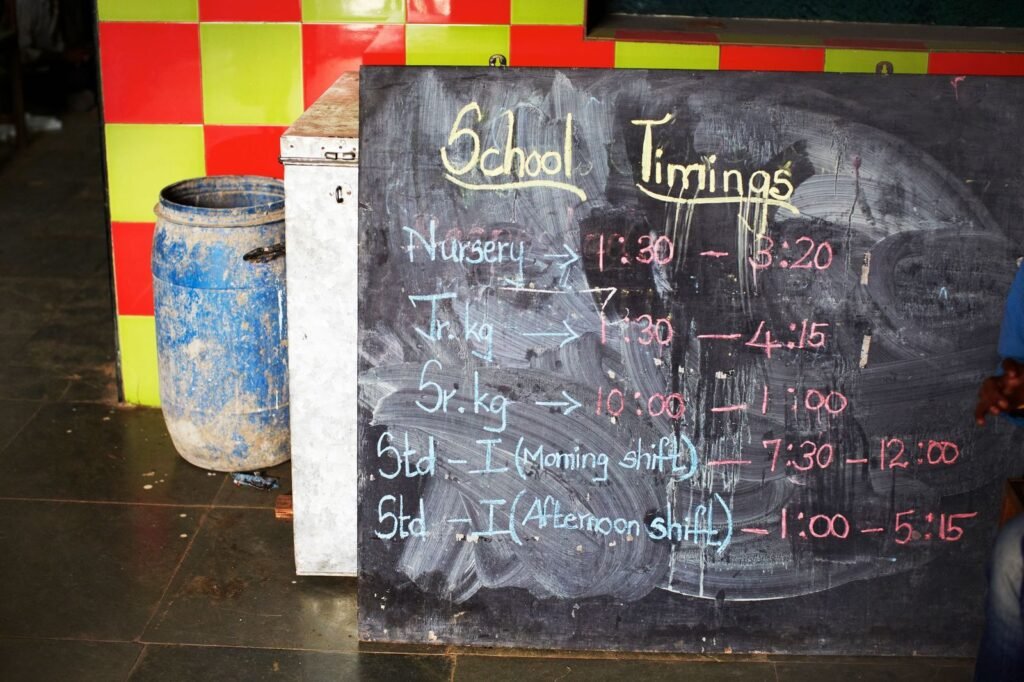 School Timings
Nursery → 1:30 — 3:20
Jr.kg → 1:30 — 4:15
Sr.kg → 10:00 — 1:00
Std - I (Morning shift) — 7:30 - 12:00
Std - I (Afternoon shift) - 1:00 - 5:15